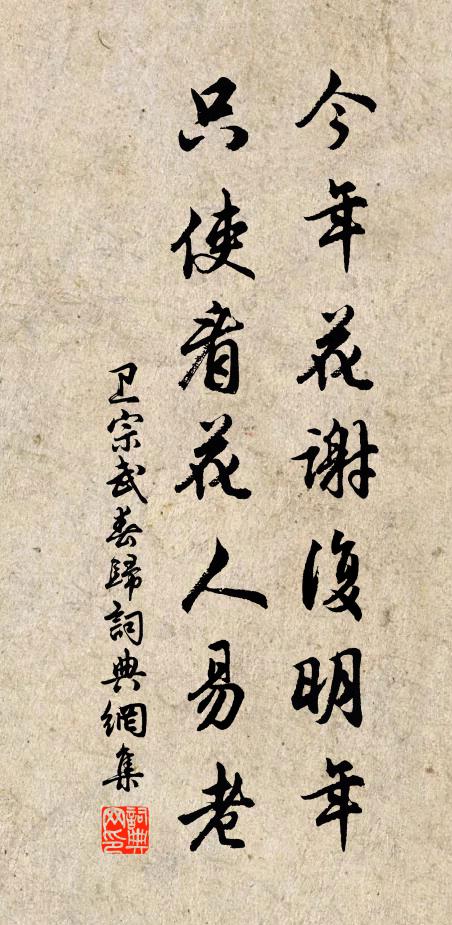 今年花谢復明年
只使看花人易老
卫宗武春歸詞典網集
詞典
网印